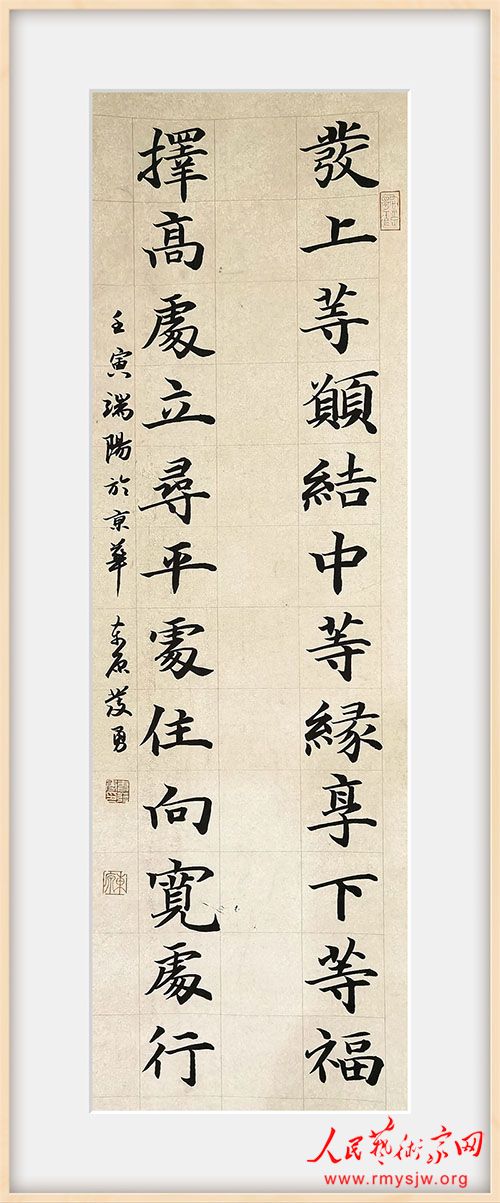 發上等願結中等緣享下等福
擇高處立尋平處住向寬處行
壬寅端陽於京華 東原發勇
人民藝術家网
www.rmysjw.org